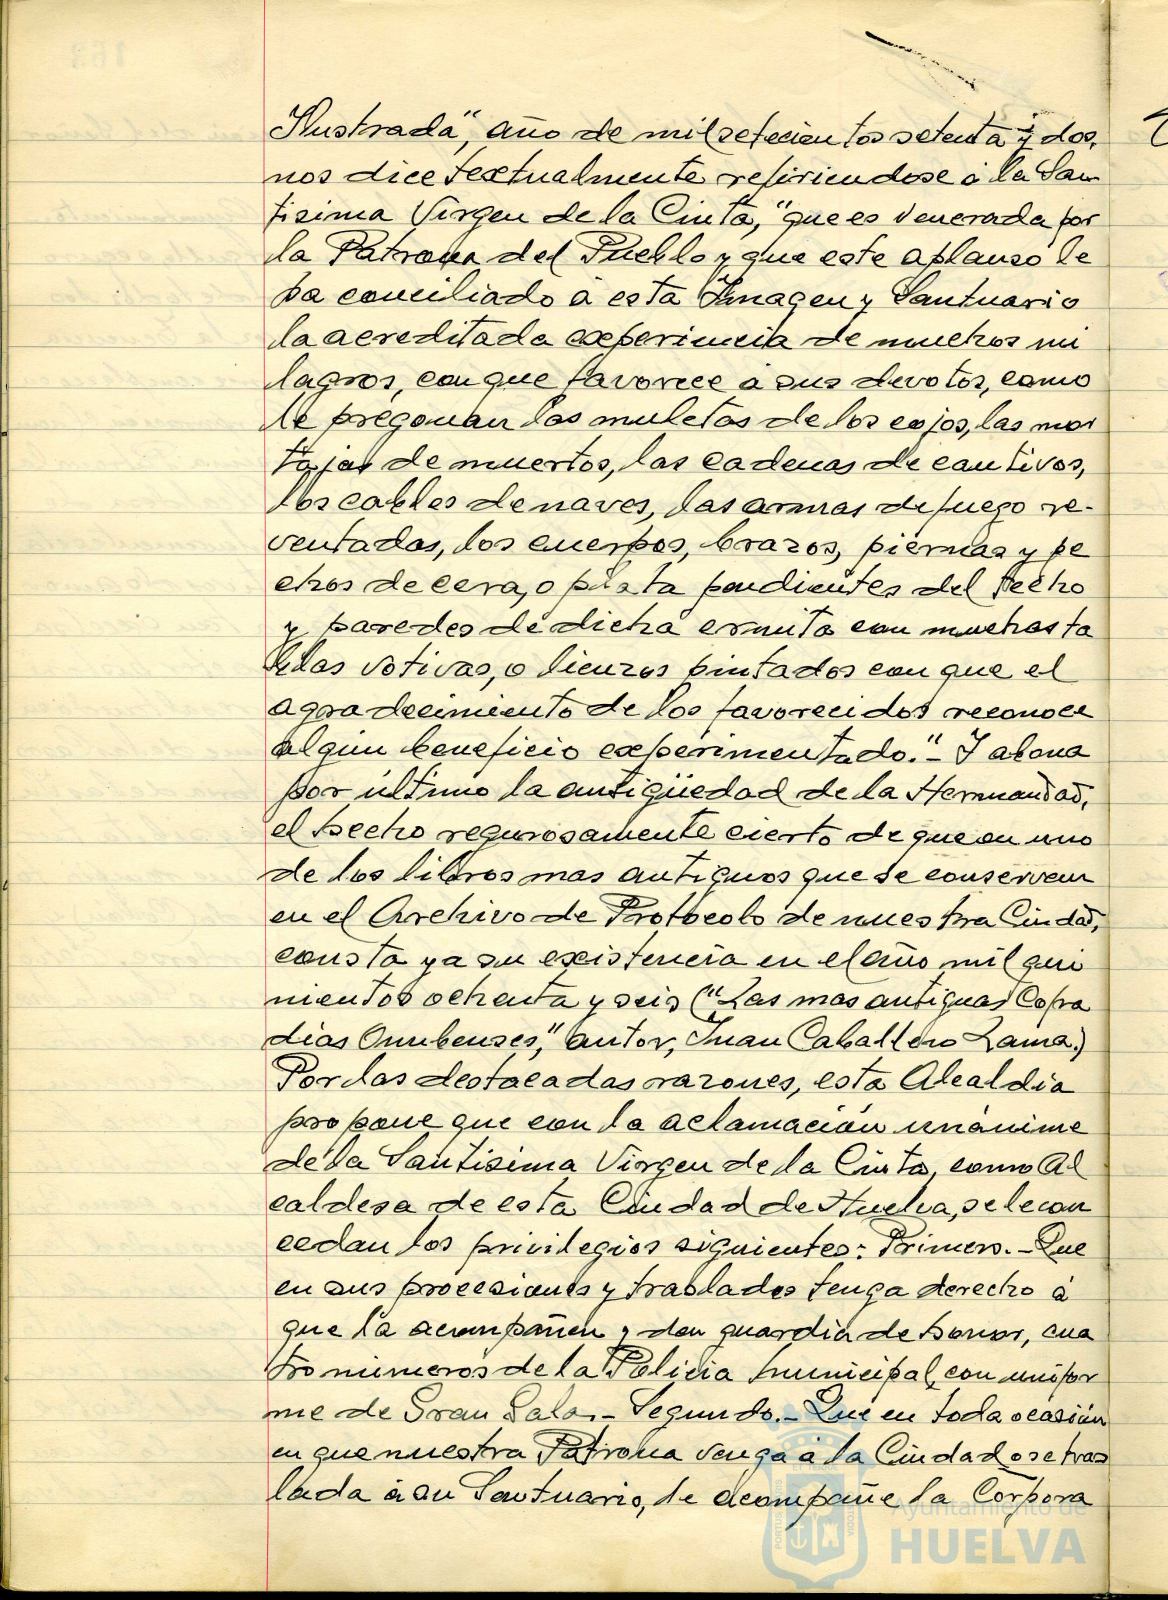 Ilustrada", año de mil setecientos setenta y dos,
nos dice textualmente refiriendose á la San
tisima Virgen de la Cinta, "que es venerada por
la Patrona del Pueblo y que este aplauso le
ha conciliado á esta Imagen y Santuario
la acreditada experiencia de muchos mi
lagros, con que favorece á sus devotos, como
le pregonan las muletas de los cojos, las mor
tajas de muertos, las cadenas de cautivos,
los cables de naves, las armas de fuego re-
ventadas, los cuerpos, brazos, piernas y pe
chos de cera, o plata pendientes del techo
y paredes de dicha ermita con muchas ta
blas votivas, o lienzos pintados con que el
agradecimiento de los favorecidos reconoce
algún beneficio experimentado."- Y abona
por último la antigüedad de la Hermandad,
el hecho regurosamente cierto de que en uno
de los libros mas antiguos que se conservan
en el Archivo de Protocolo de nuestra Ciudad,
consta ya su existencia en el año mil qui
nientos ochenta y seis ("Las mas antiguas Cofra
dias Onubenses," autor, Juan Caballero Lama.)
Por las destacadas razones, esta Alcaldia
propone que con la aclamación unánime
de la Santisima Virgen de la Cinta, como Al
caldesa de esta Ciudad de Huelva, se le con
cedan los privilegios siguientes: Primero.- Que
en sus procesiones y traslados tenga derecho á
que la acompañen y den guardia de honor, cua
tro números de la Policia Municipal, con unifor
me de Gran Gala.- Segundo.- Que en toda ocasión
en que nuestra Patrona venga á la Ciudad o se tras
lada á su Santuario, le acompañe la Corpora
Ayuntamiento de
HUELVA